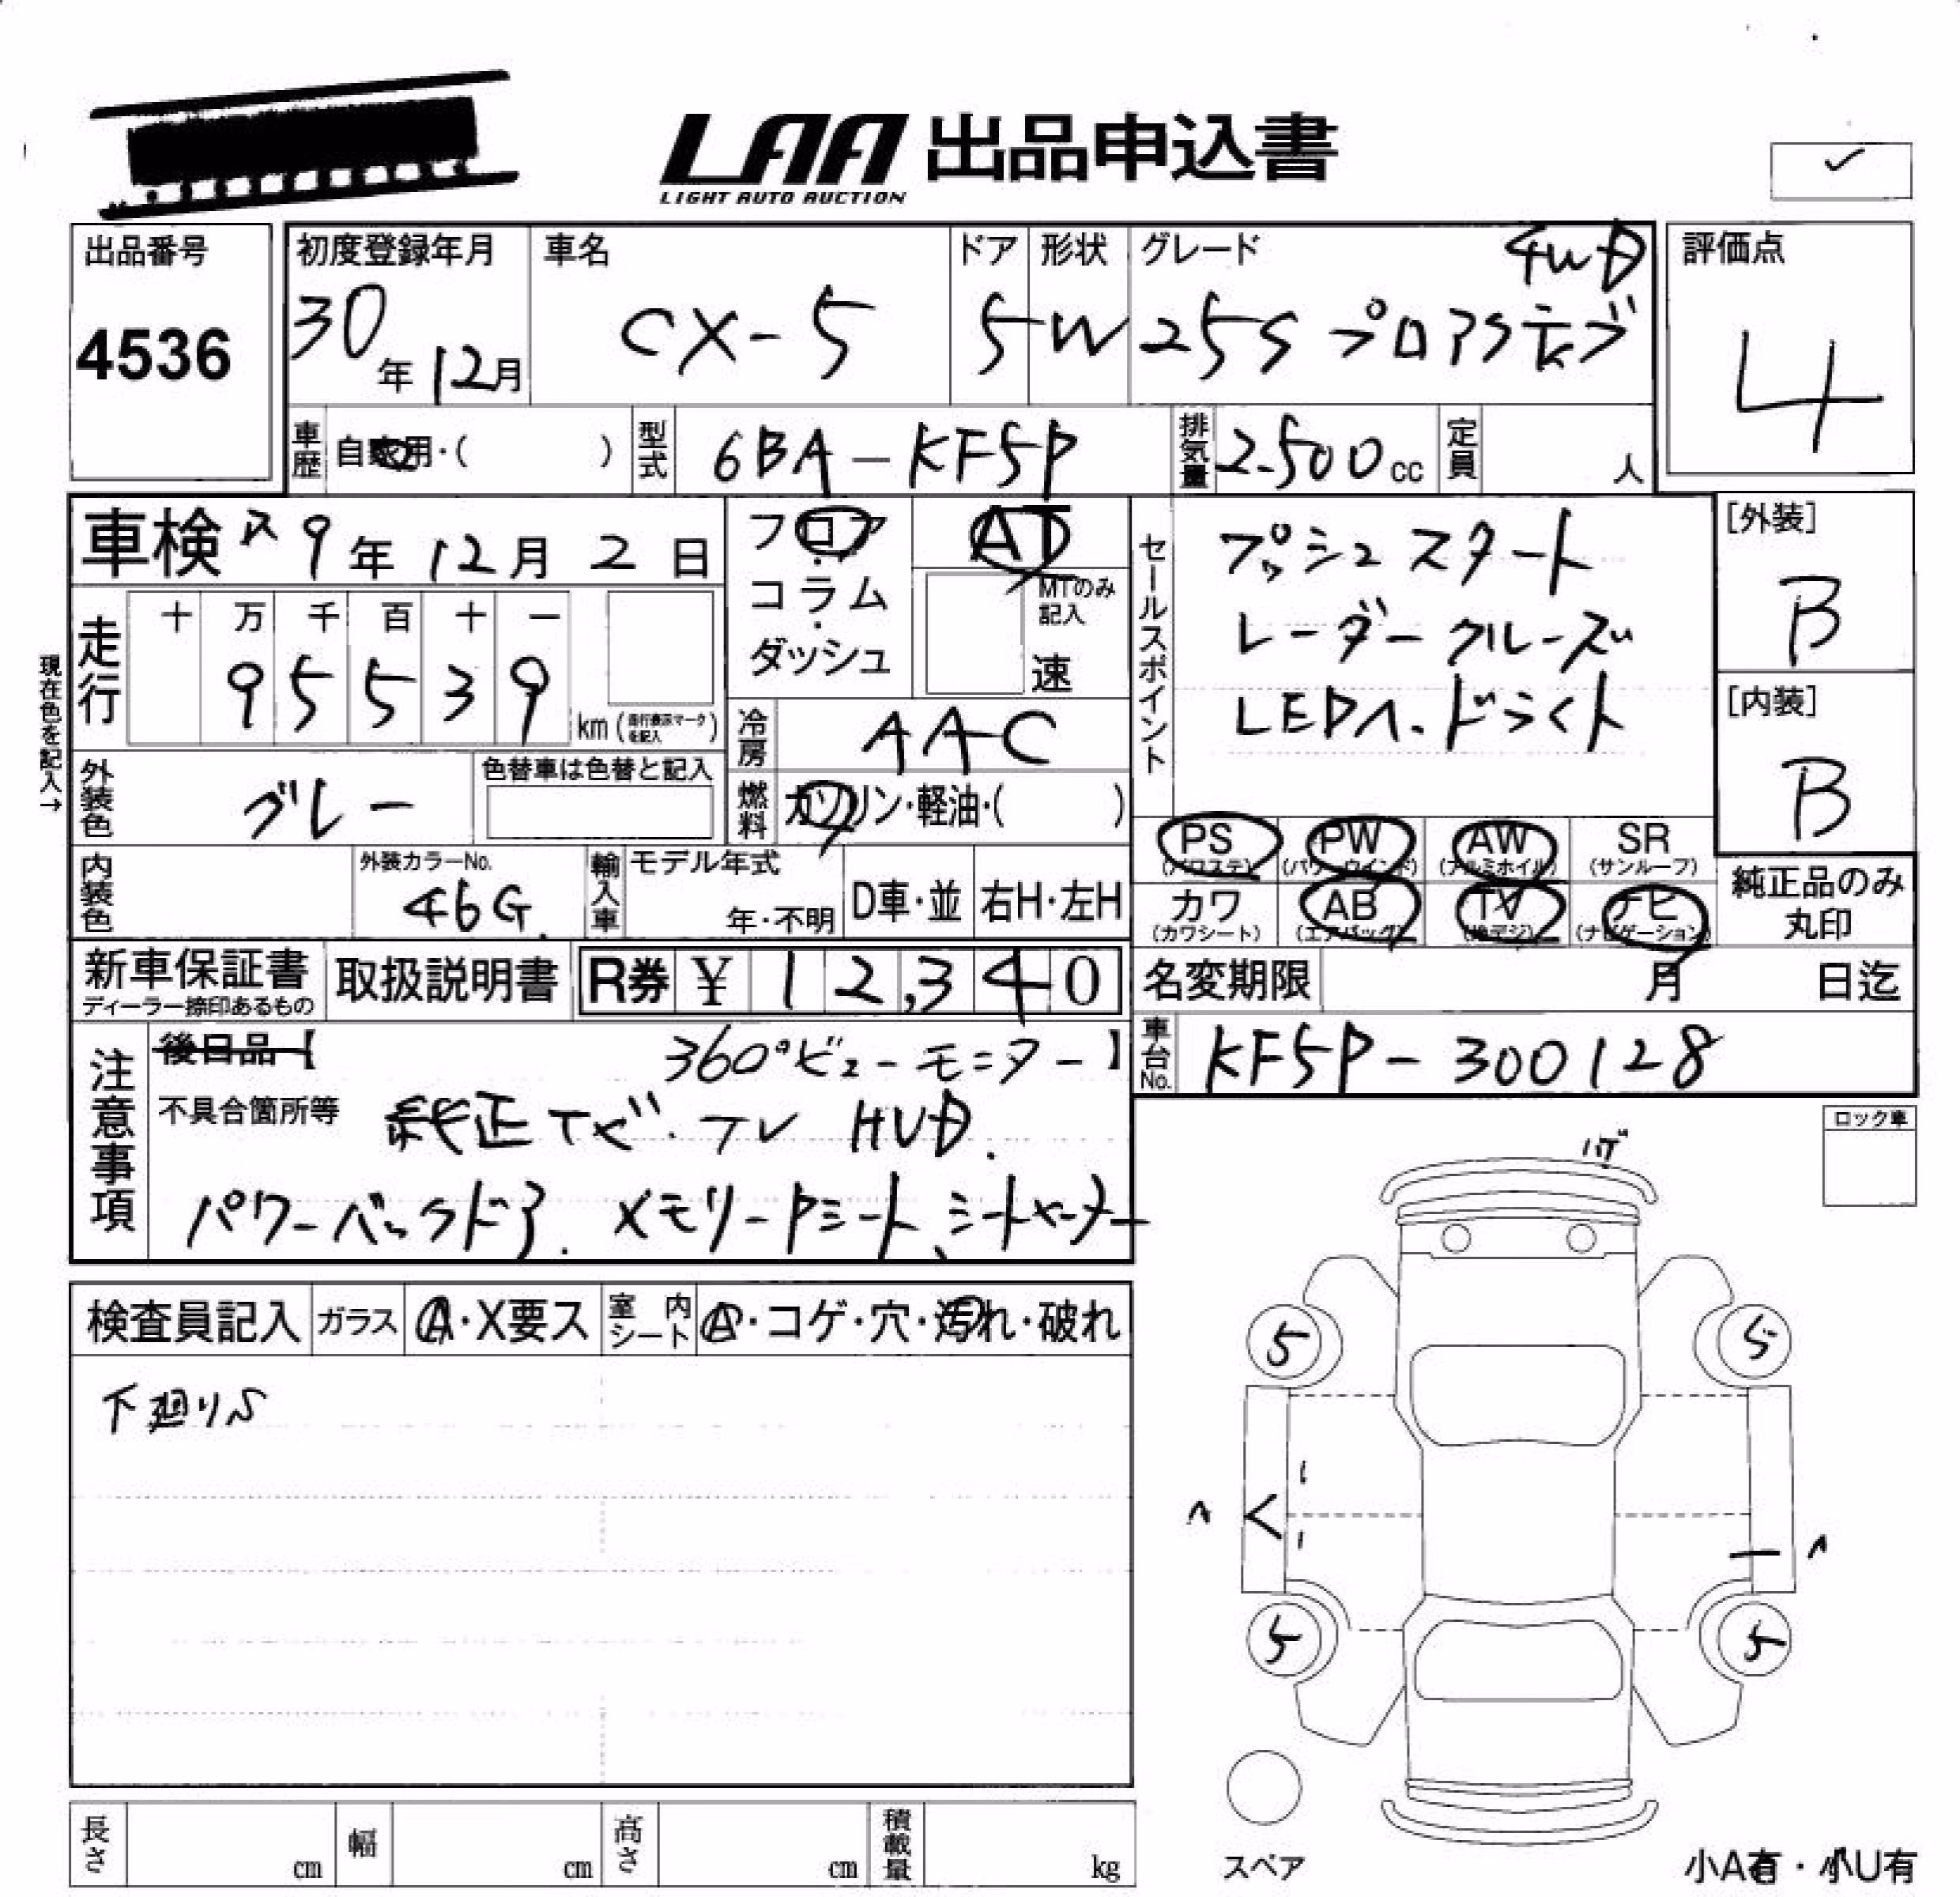 LAA 出品申込書
LIGHT AUTO AUCTION
出品番号
4536
初度登録年月
30年12月
車名
CX-5
ドア
5
形状
W
グレード
4WD
25S プロアクティブ
評価点
4
車歴
自家用・( )
型式
6BA-KF5P
排気量
2500cc
定員
人
車検 R9年12月2日
フロア・コラム・ダッシュ
AT
MTのみ記入
速
セールスポイント
プッシュスタート
レーダークルーズ
LEDヘ.ドラレコ
[外装]
B
[内装]
B
現在色を記入→
走行
十 万 千 百 十 一
9 5 5 3 9
km (走行表示マークを記入)
冷房
AAC
外装色
グレー
色替車は色替と記入
燃料
ガソリン・軽油・( )
PS (パワステ)
PW (パワーウインド)
AW (アルミホイル)
SR (サンルーフ)
カワ (カワシート)
AB (エアバッグ)
TV (地デジ)
ナビ (ナビゲーション)
純正品のみ丸印
内装色
外装カラーNo.
46G
輸入車
モデル年式
年・不明
D車・並
右H・左H
新車保証書
ディーラー捺印あるもの
取扱説明書
R券 ¥ 12,340
名変期限
月 日迄
車台No.
KF5P-300128
注意事項
後日品【 360°ビューモニター 】
不具合箇所等 純正ナビ.TV HUD.
パワーバックドア.メモリーPシート、シートヒーター
ロック車
ハゲ
検査員記入
ガラス
A・X要ス
室内シート
A・コゲ・穴・汚れ・破れ
下廻りS
5
5
5
5
スペア
小A有・小U有
長さ
cm
幅
cm
高さ
cm
積載量
kg